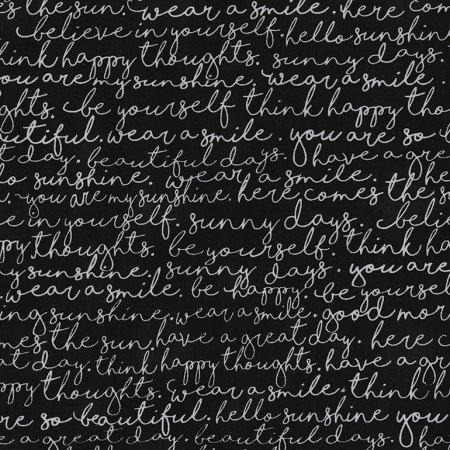 es the sun. wear a smile. here com
believe in yourself. hello sunshine
hink happy thoughts. sunny days.
you are my sunshine. wear a smile.
ghts. be yourself. think happy tho
autiful. wear a smile. you are so b
at day. beautiful days. have a grea
lo sunshine. wear a smile. he
u. you are my sunshine. here comes the su
e in yourself. sunny days. believ
ppy thoughts. be yourself. think h
my sunshine. sunny days. you are
wear a smile. be happy. be yourse
ing sunshine. wear a smile. good mor
mes the sun. have a great day. here c
at day. think happy thoughts. have a
ppy thoughts. wear a smile. think h
re so beautiful. hello sunshine you
e a great day. beautiful days. have